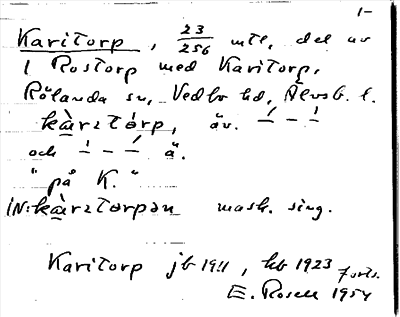 1-
Karitorp, 23/256 mtl, del av
1 Rostorp med Karitorp,
Rölanda sn, Vedbo hd, Älvsb. l.
kàrɩtórp, äv. –́ – –̀
och –̀ – –́ ä.
"på K."
IN: kàrɩtɵrpən mask. sing.
Karitorp jb 1911, kb 1923 forts.
E. Rosell 1954